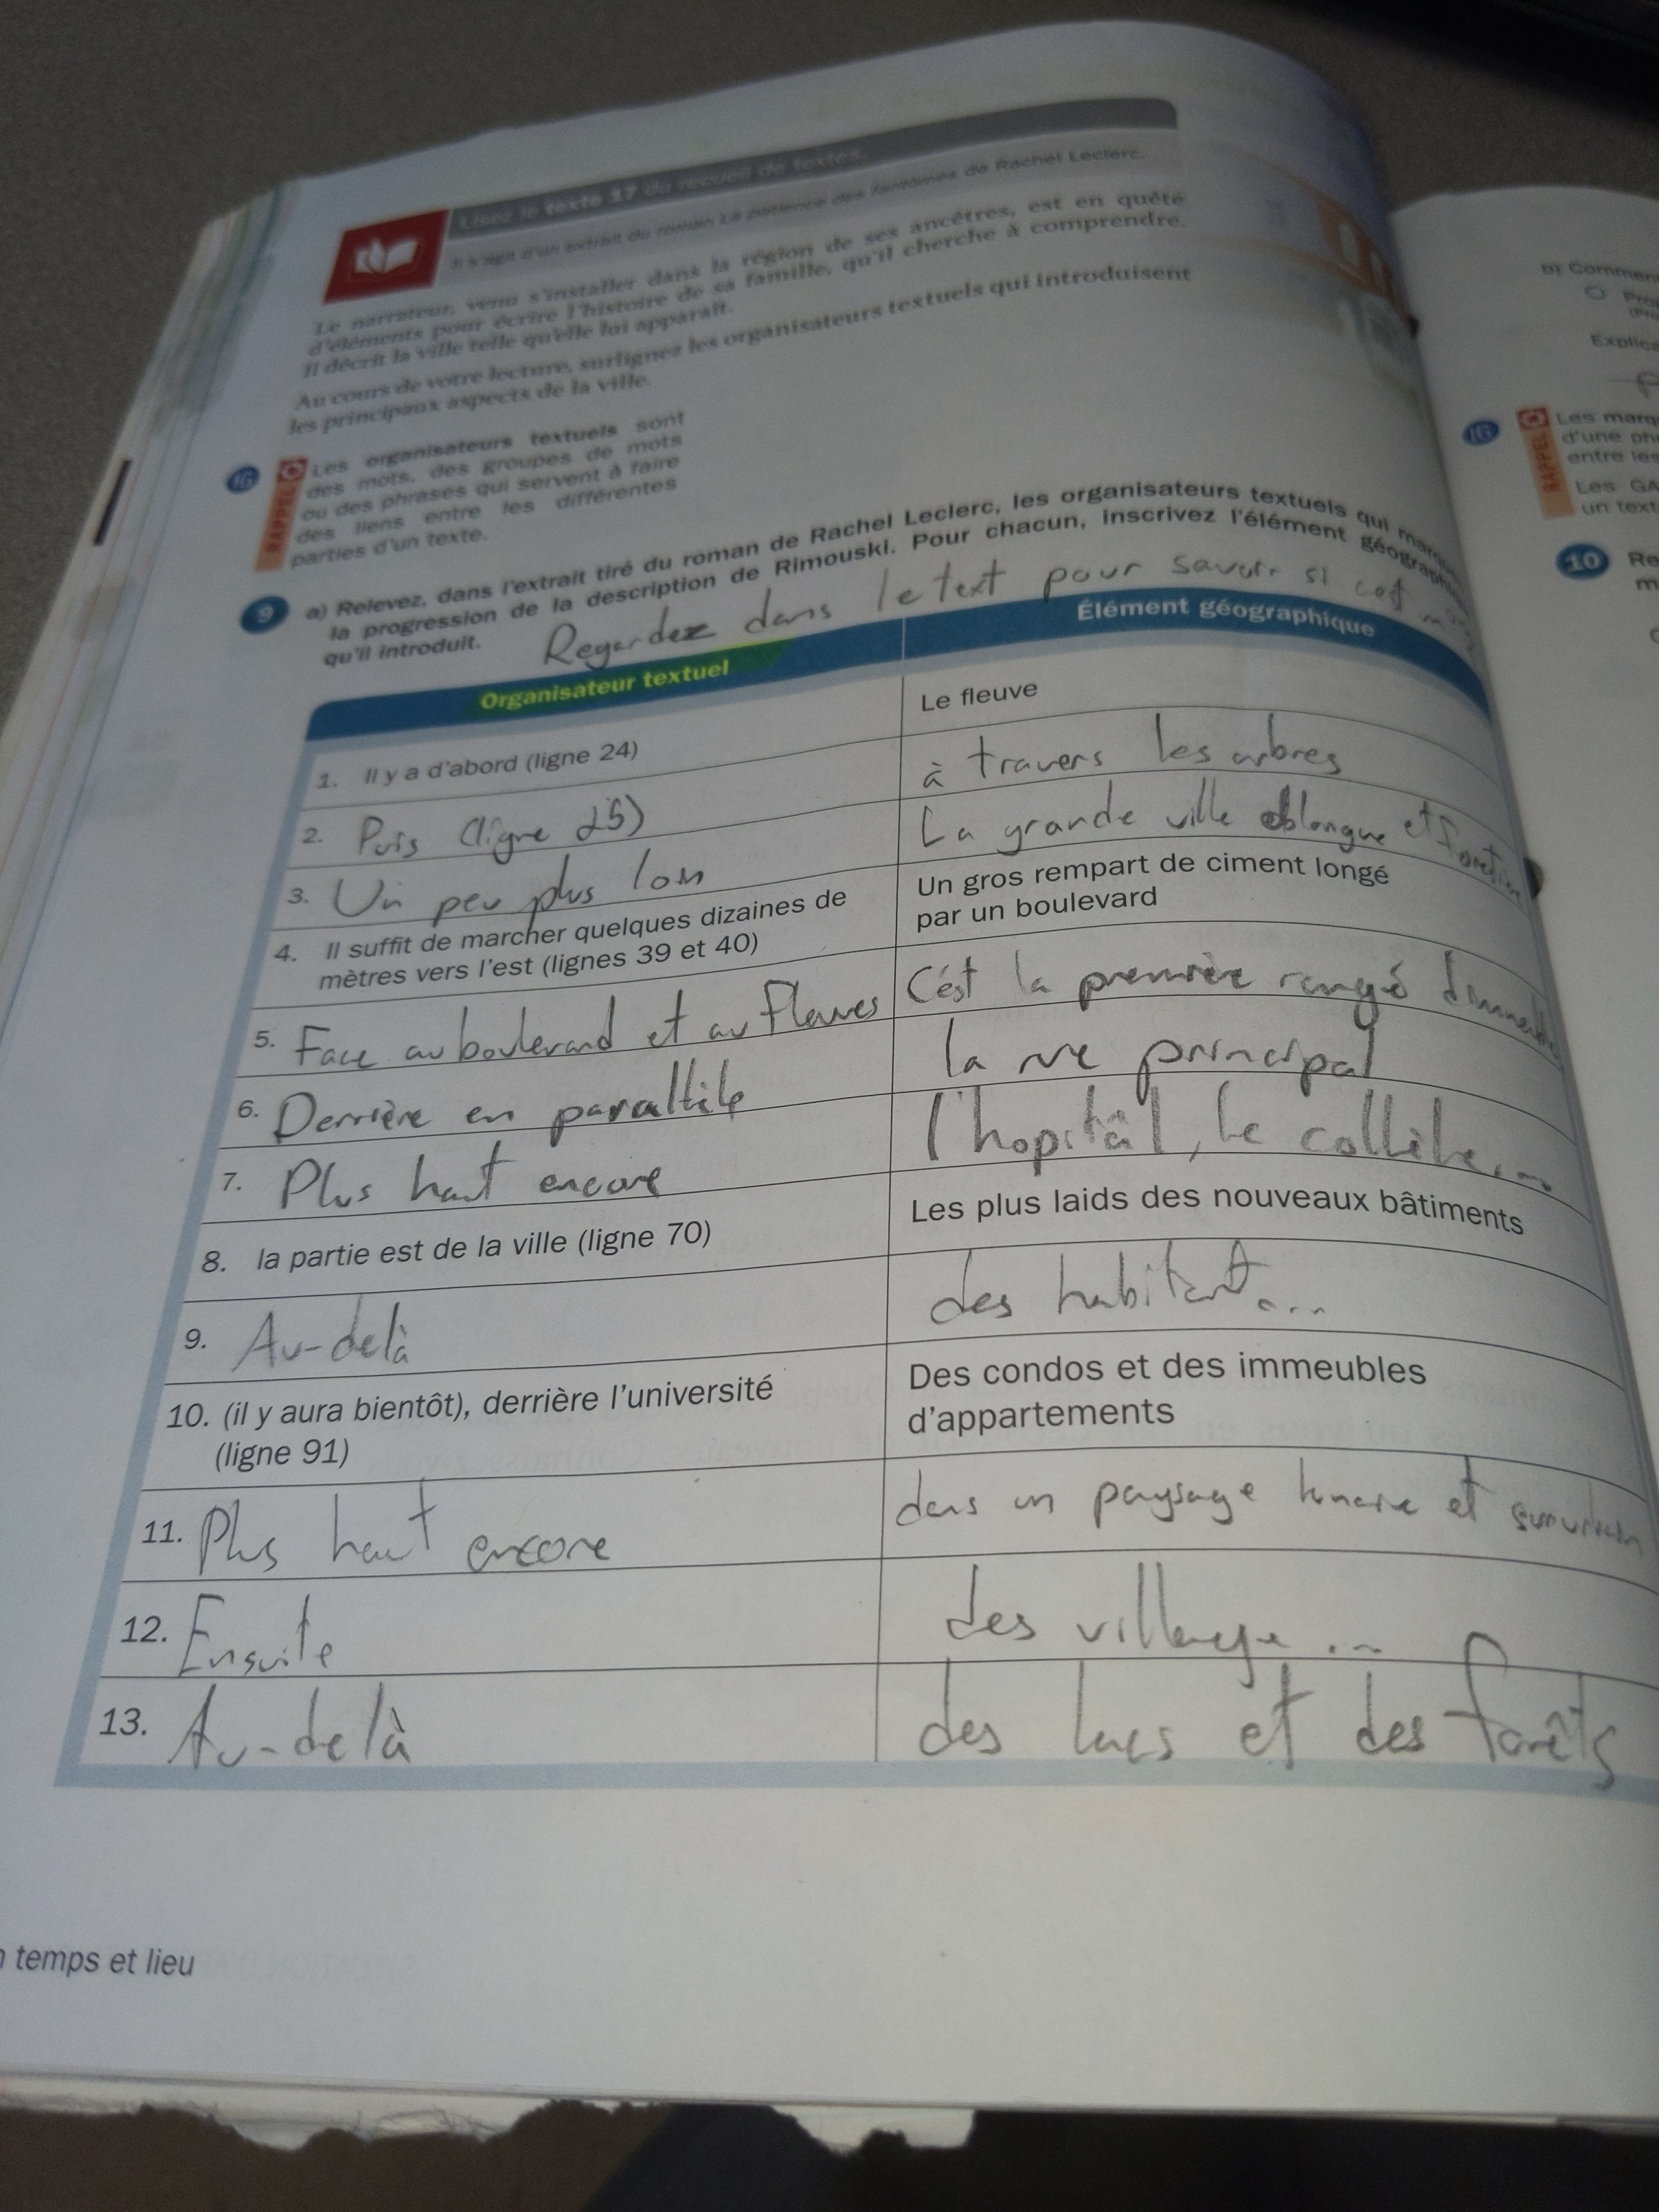 Lisez le texte 17 du recueil de textes.
Il s'agit d'un extrait du roman La patience des fantômes de Rachel Leclerc.
Le narrateur, venu s'installer dans la région de ses ancêtres, est en quête
d'éléments pour écrire l'histoire de sa famille, qu'il cherche à comprendre.
Il décrit la ville telle qu'elle lui apparaît.
Au cours de votre lecture, surlignez les organisateurs textuels qui introduisent
les principaux aspects de la ville.
IG
RAPPEL
Les organisateurs textuels sont
des mots, des groupes de mots
ou des phrases qui servent à faire
des liens entre les différentes
parties d'un texte.
9 a) Relevez, dans l'extrait tiré du roman de Rachel Leclerc, les organisateurs textuels qui
la progression de la description de Rimouski. Pour chacun, inscrivez l'élément
qu'il introduit.
Regardez dans le text pour savoir si cest
Organisateur textuel Élément géographique
1. Il y a d'abord (ligne 24) Le fleuve
2. Puis (ligne 25) à travers les arbres
3. Un peu plus loin La grande ville oblongue et
4. Il suffit de marcher quelques dizaines de
mètres vers l'est (lignes 39 et 40)
Un gros rempart de ciment longé
par un boulevard
5. Face au boulevard et au fleuves C'ést la première rangé
6. Derrière en parallèle la rue principal
7. Plus haut encore l'hopitâl, le
8. la partie est de la ville (ligne 70) Les plus laids des nouveaux bâtiments
9. Au-delà des habitant...
10. (il y aura bientôt), derrière l'université
(ligne 91)
Des condos et des immeubles
d'appartements
11. Plus haut encore dans un paysage lunaire et
12. Ensuite des village...
13. Au-delà des lacs et des forêts
temps et lieu
b) Commen
Pro
Explica
IG
RAPPEL
Les marq
d'une ph
entre les
Les GA
un text
10 Re
m